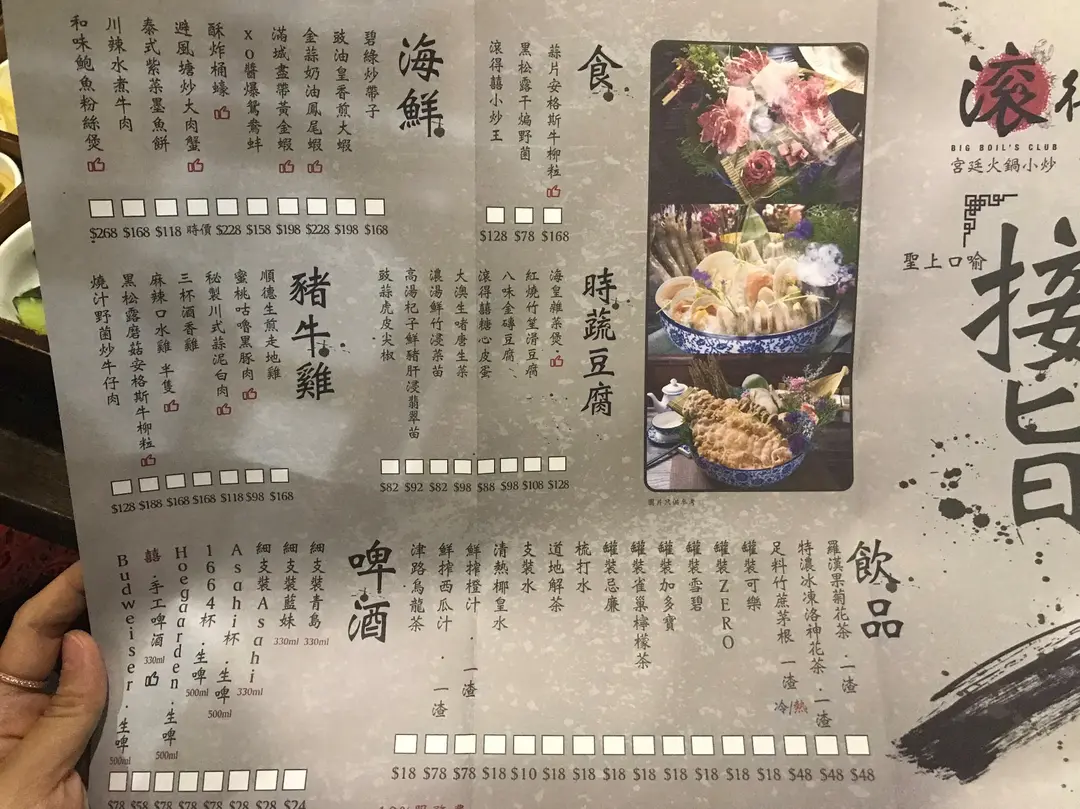 滾得
BIG BOIL'S CLUB
宮廷火鍋小炒
聖上口喻
接旨
圖片只供參考
食
蒜片安格斯牛柳粒
黑松露干煸野菌
滾得囍小炒王
$128 $78 $168
海鮮
碧綠炒帶子
豉油皇香煎大蝦
金蒜奶油鳳尾蝦
滿城盡帶黃金蝦
XO醬爆鴛鴦蚌
酥炸桶蠔
避風塘炒大肉蟹
泰式紫菜墨魚餅
川辣水煮牛肉
和味鮑魚粉絲煲
$268 $168 $118 時價 $228 $158 $198 $228 $198 $168
時蔬豆腐
海皇雜菜煲
紅燒竹笙滑豆腐
八味金磚豆腐
滾得囍糖心皮蛋
大澳生啫唐生菜
濃湯鮮竹浸菜苗
高湯杞子鮮豬肝浸翡翠苗
豉蒜虎皮尖椒
$82 $92 $82 $98 $88 $98 $108 $128
豬牛雞
順德生煎走地雞
蜜桃咕嚕黑豚肉
秘製川式蒜泥白肉
三杯酒香雞
麻辣口水雞 半隻
黑松露蘑菇安格斯牛柳粒
燒汁野菌炒牛仔肉
$128 $188 $168 $168 $118 $98 $168
飲品
羅漢果菊花茶．一渣
特濃冰凍洛神花茶．一渣
足料竹蔗茅根 一渣 冷/熱
罐裝可樂
罐裝ZERO
罐裝雪碧
罐裝加多寶
罐裝雀巢檸檬茶
罐裝忌廉
梳打水
道地解茶
支裝水
清熱椰皇水
鮮榨橙汁．一渣
鮮榨西瓜汁．一渣
津路烏龍茶
$18 $78 $78 $18 $10 $18 $18 $18 $18 $18 $18 $18 $18 $48 $48 $48
啤酒
細支裝青島 330ml
細支裝藍妹 330ml
細支裝Asahi 330ml
Asahi杯．生啤 500ml
1664杯．生啤 500ml
Hoegaarden．生啤 500ml
囍．手工啤酒 330ml
Budweiser．生啤 500ml
$78 $58 $78 $78 $78 $28 $28 $24